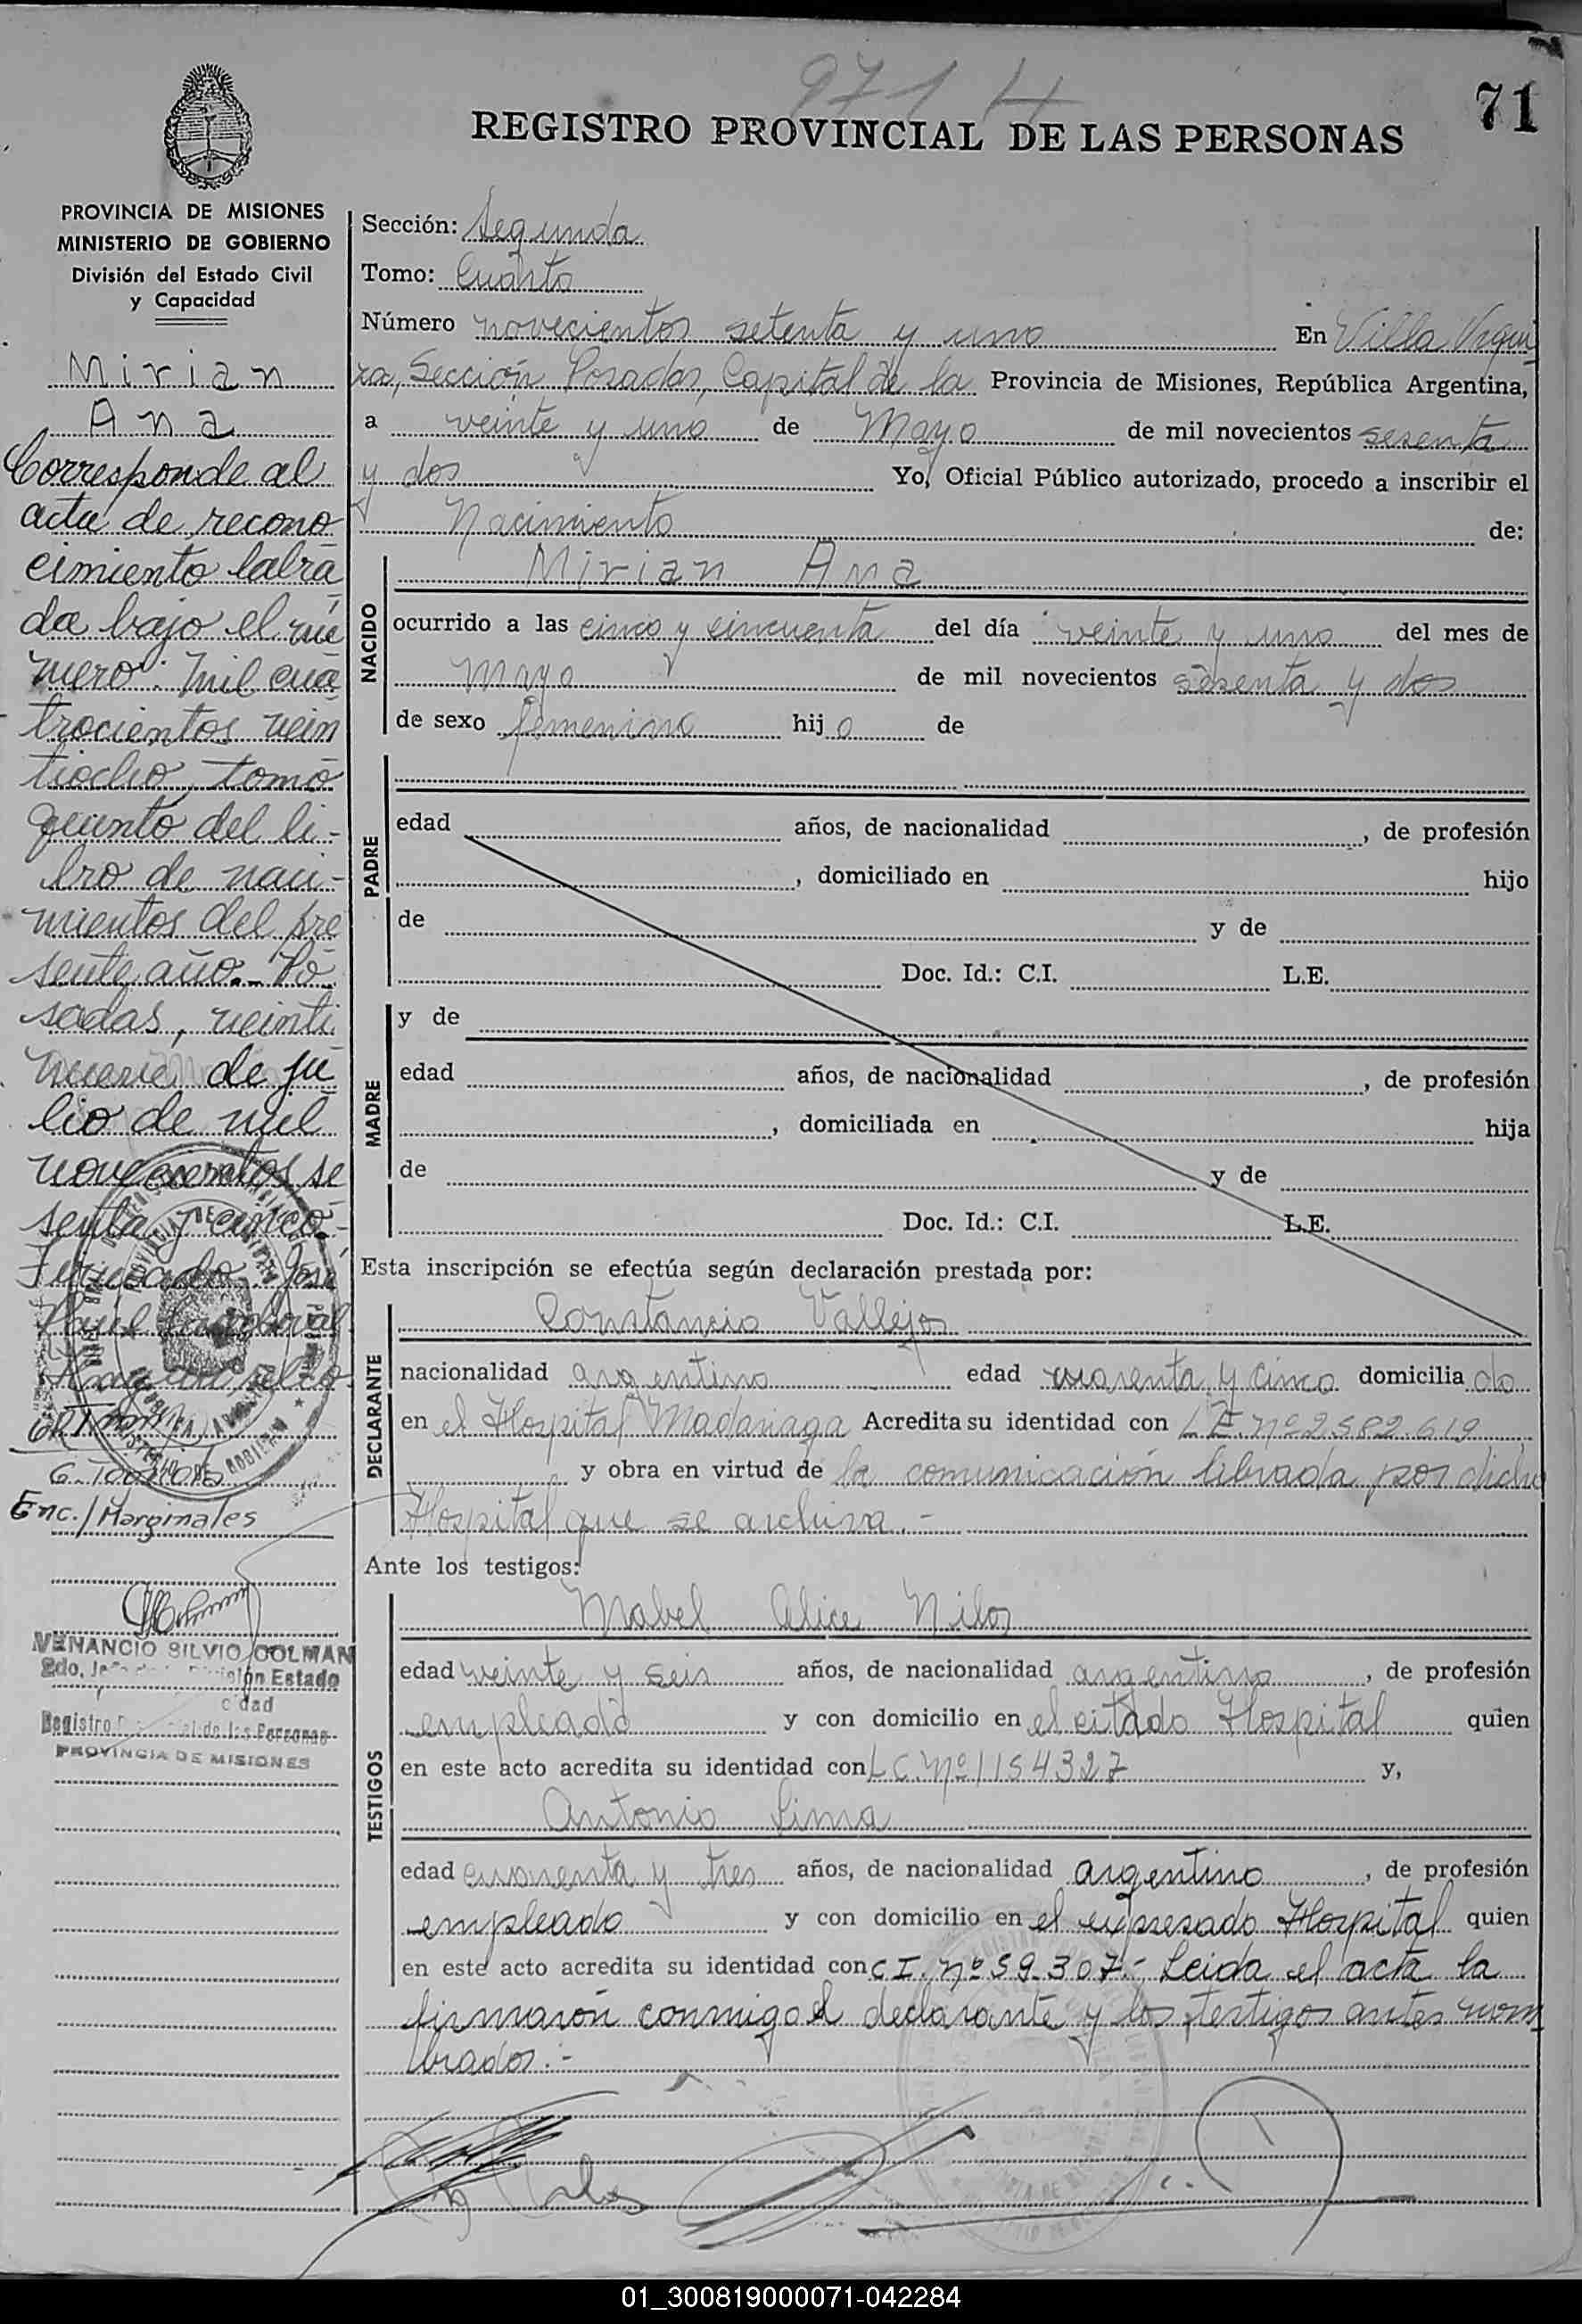 971 4
71
REGISTRO PROVINCIAL DE LAS PERSONAS
PROVINCIA DE MISIONES
MINISTERIO DE GOBIERNO
División del Estado Civil
y Capacidad
Mirian
Ana
Corresponde al
acta de recono
cimiento labra
da bajo el nú
mero: Mil cua
trocientos vein
tiocho, tomo
quinto del li-
bro de naci-
mientos del pre
sente año.- Po
sadas, veinti
nueve de ju
lio de mil
novecientos se
senta y cinco.-
Enc./Marginales
VENANCIO SILVIO COLMAN
2do. Estado
Registro de las Personas
PROVINCIA DE MISIONES
Sección: Segunda
Tomo: Cuarto
Número novecientos setenta y uno En Villa Urqui
za, Sección Posadas, Capital de la Provincia de Misiones, República Argentina,
a veinte y uno de Mayo de mil novecientos sesenta
y dos Yo, Oficial Público autorizado, procedo a inscribir el
Nacimiento de:
NACIDO
Mirian Ana
ocurrido a las cinco y cincuenta del día veinte y uno del mes de
mayo de mil novecientos sesenta y dos
de sexo femenino hijo de
PADRE
edad años, de nacionalidad , de profesión
, domiciliado en hijo
de y de
Doc. Id.: C.I. L.E.
MADRE
y de
edad años, de nacionalidad , de profesión
, domiciliada en hija
de y de
Doc. Id.: C.I. L.E.
Esta inscripción se efectúa según declaración prestada por:
DECLARANTE
Constancio Vallejos
nacionalidad argentino edad cuarenta y cinco domiciliado
en el Hospital Madariaga Acredita su identidad con L.E. nº 2582.619
y obra en virtud de la comunicación librada por dicho
Hospital que se archiva.-
Ante los testigos:
TESTIGOS
Mabel Alice Nilos
edad veinte y seis años, de nacionalidad argentino, de profesión
empleado y con domicilio en el citado Hospital quien
en este acto acredita su identidad con L.C. Nº 1154327 y,
Antonio Lima
edad cuarenta y tres años, de nacionalidad argentino, de profesión
empleado y con domicilio en el expresado Hospital quien
en este acto acredita su identidad con C.I. nº 59.307.- Leida el acta la
firmaron conmigo el declarante y los testigos antes nom
brados.-
01_300819000071-042284